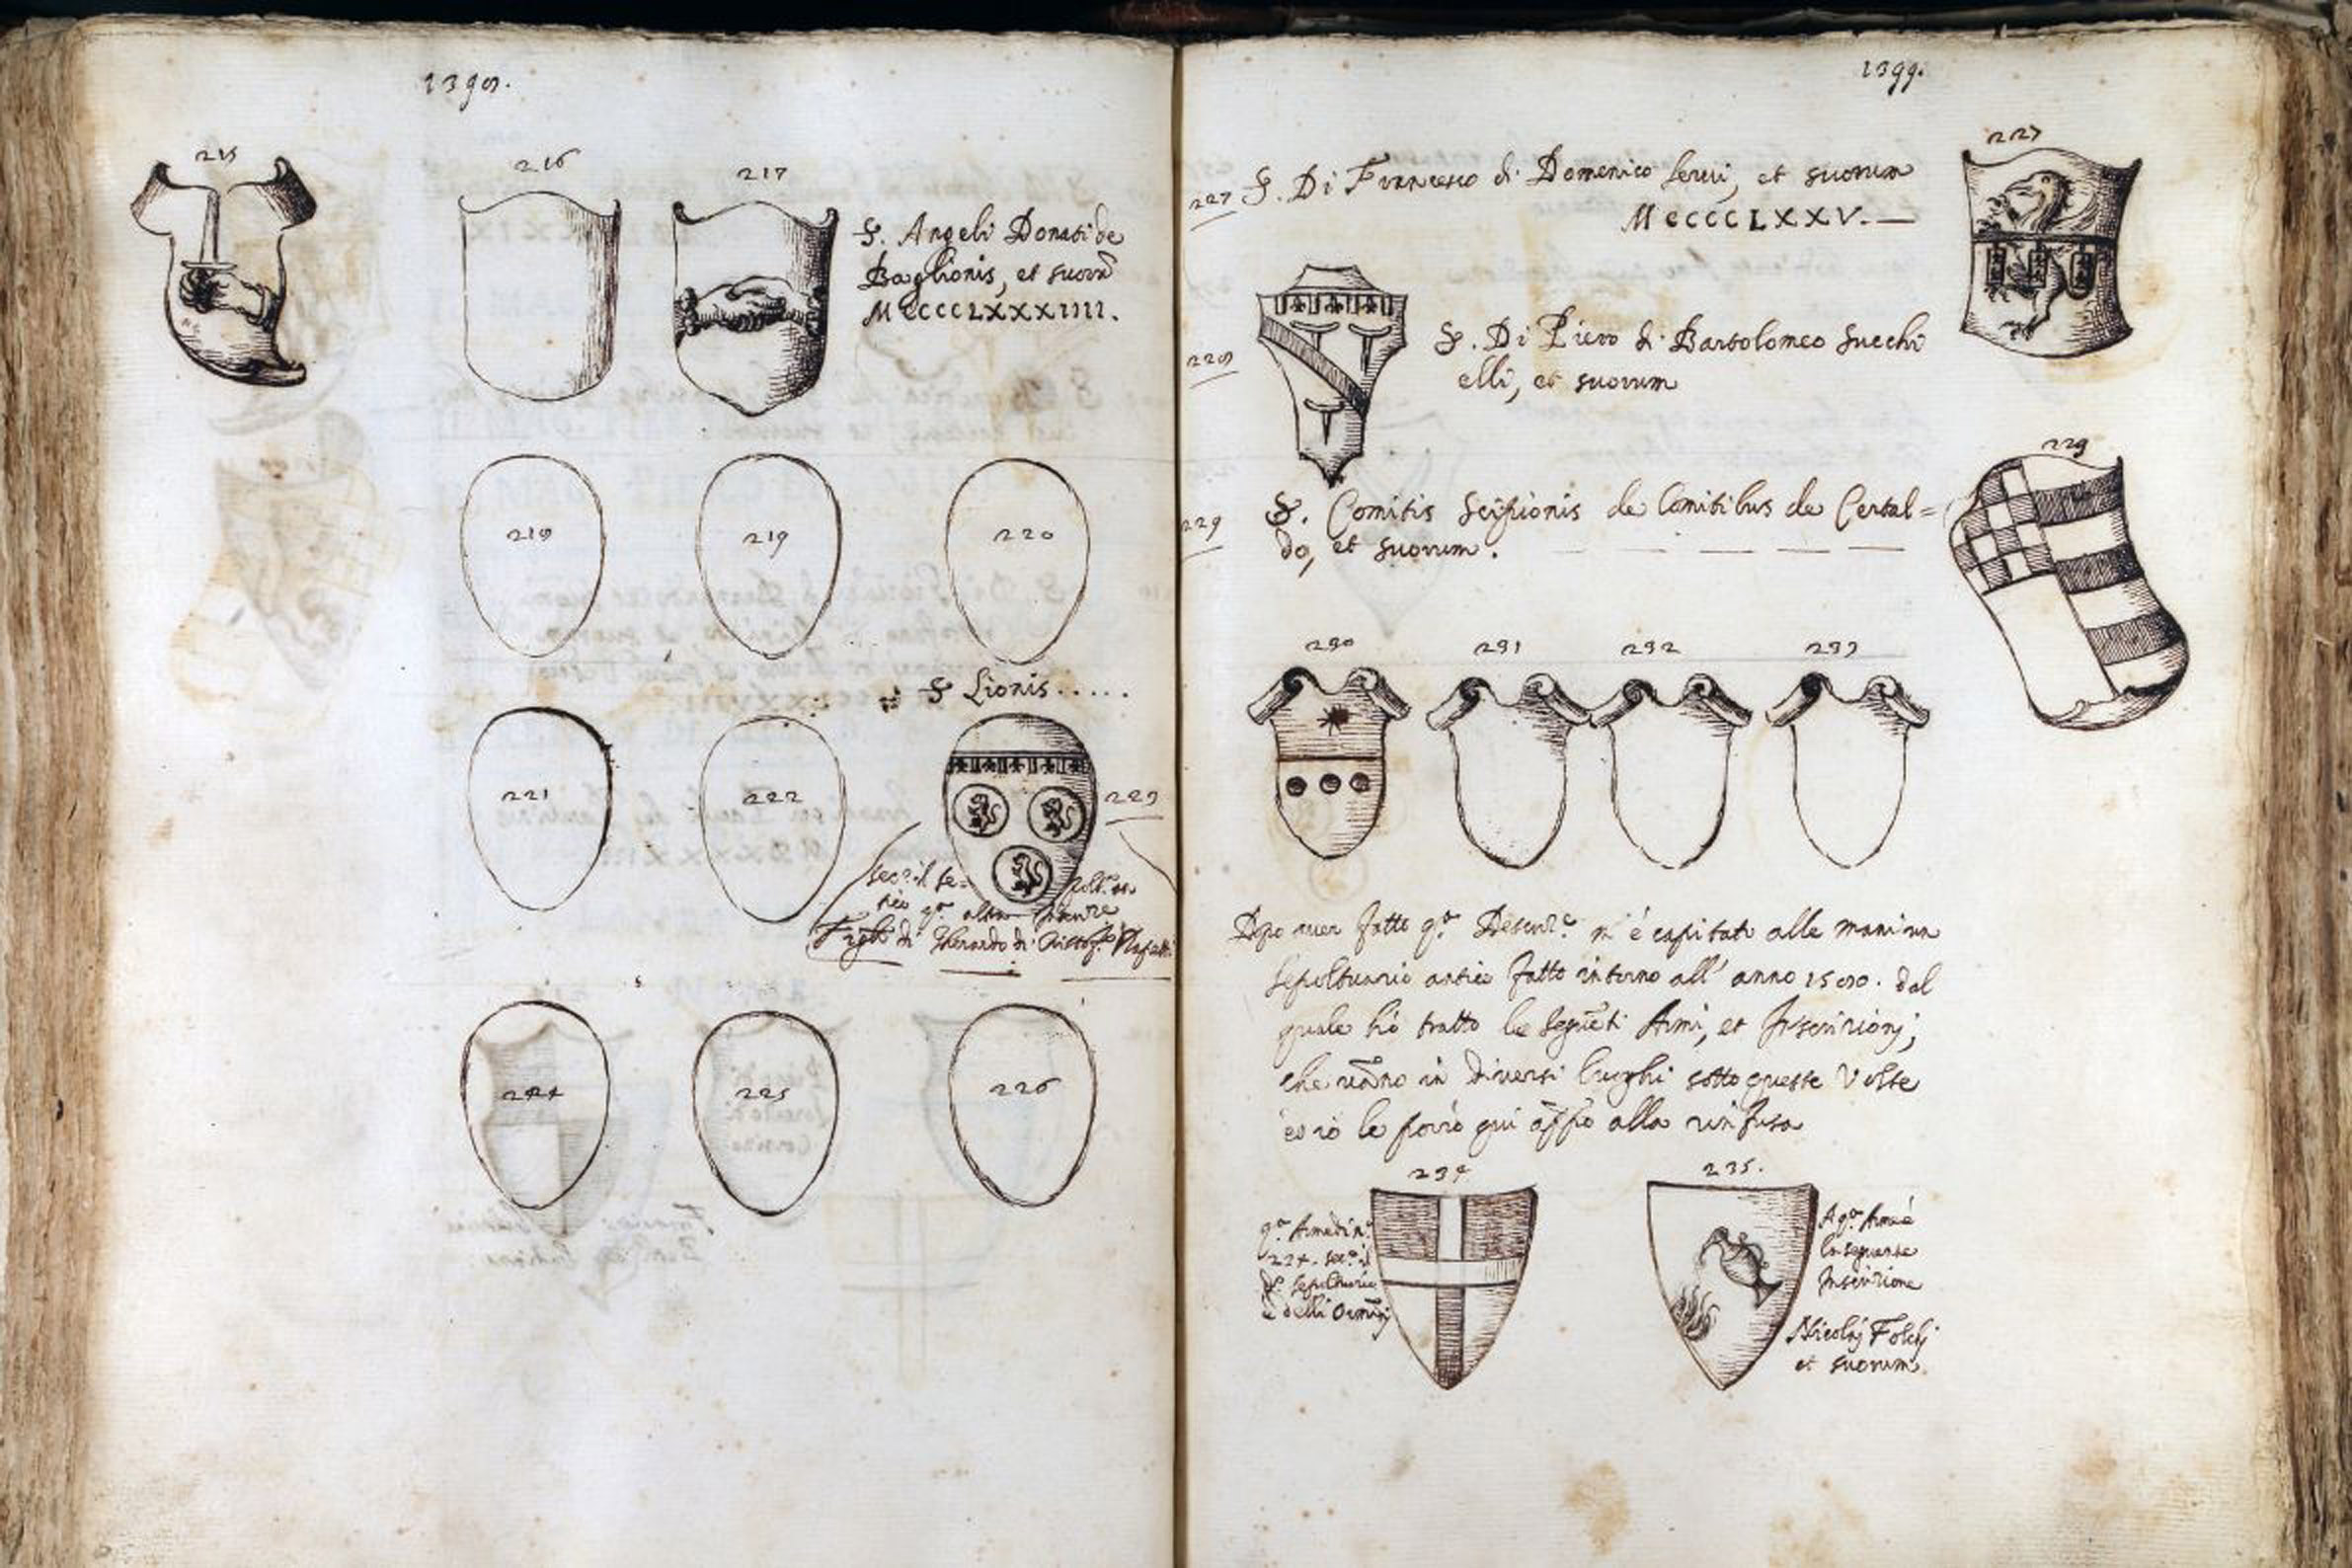 1398.
215
216
217
S. Angeli Donati de
Baglionis, et suorũ
MCCCCLXXXIIII.
218
219
220
S Lionis.....
221
222
223
sec. il se= polt.
tico q.ª altra
Figli di Gherardo di
224
225
226
1399.
227
227 S. Di Francesco di Domenico Servi, et suorum
MCCCCLXXV.—
228
S. Di Piero di Bartolomeo Succhi
elli, et suorum
229
229
S. Comitis Scipionis de Comitibus de Certal=
do, et suorum.
230
231
232
233
Dopo aver fatto q.ª Descriz.ᵉ m'è capitato alle mani un
sepoltuario antico fatto intorno all' anno 1580. dal
quale hò tratto le seguẽti Armi, et Inscrizionj,
che vãno in diversi luoghi sotto queste Volte
et io le porrò qui āppo alla rinfusa
234
235.
q.ª Arme di n.º
224. sec.º il
d.º sepoltuario
è delli
A q.ª Arme è
la seguente
Inscrizione
Nicolaj Folchj
et suorum.